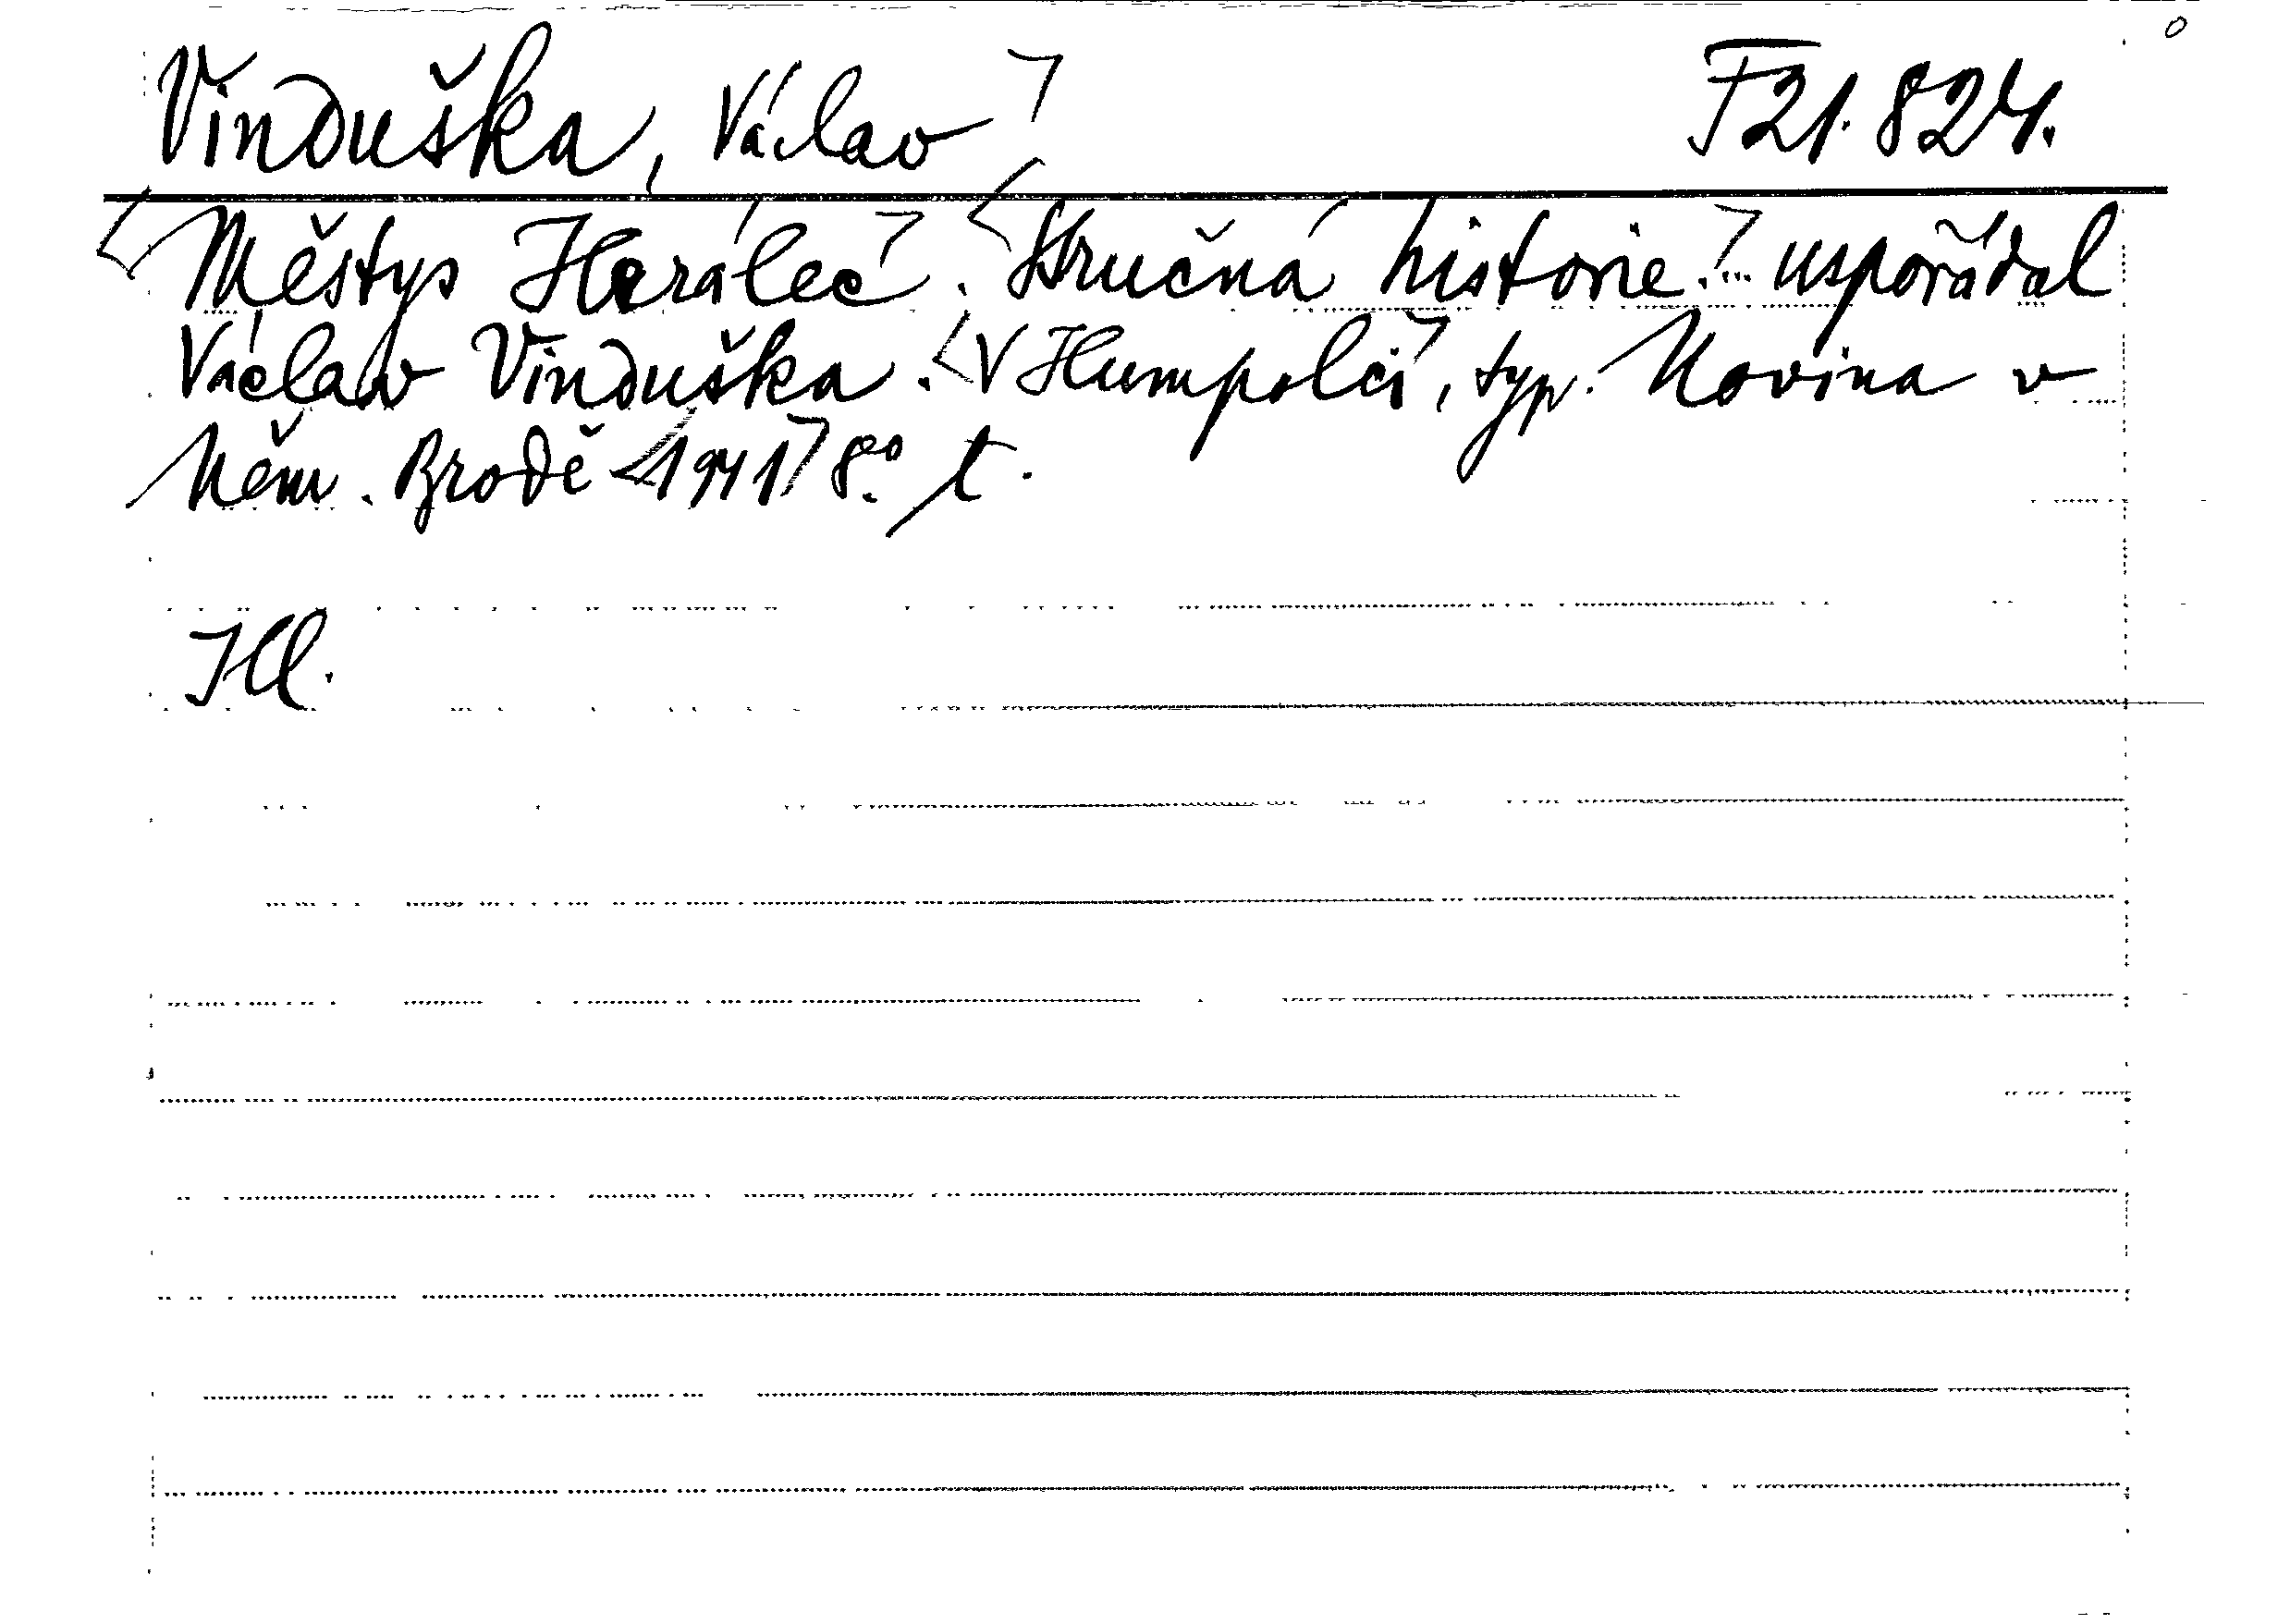 Vinduška, Václav F 21.824.
Městys Herálec. Stručná historie. ... uspořádal
Václav Vinduška. V Humpolci, typ. Novina v
Něm. Brodě 1941 8°. t.
Ill.